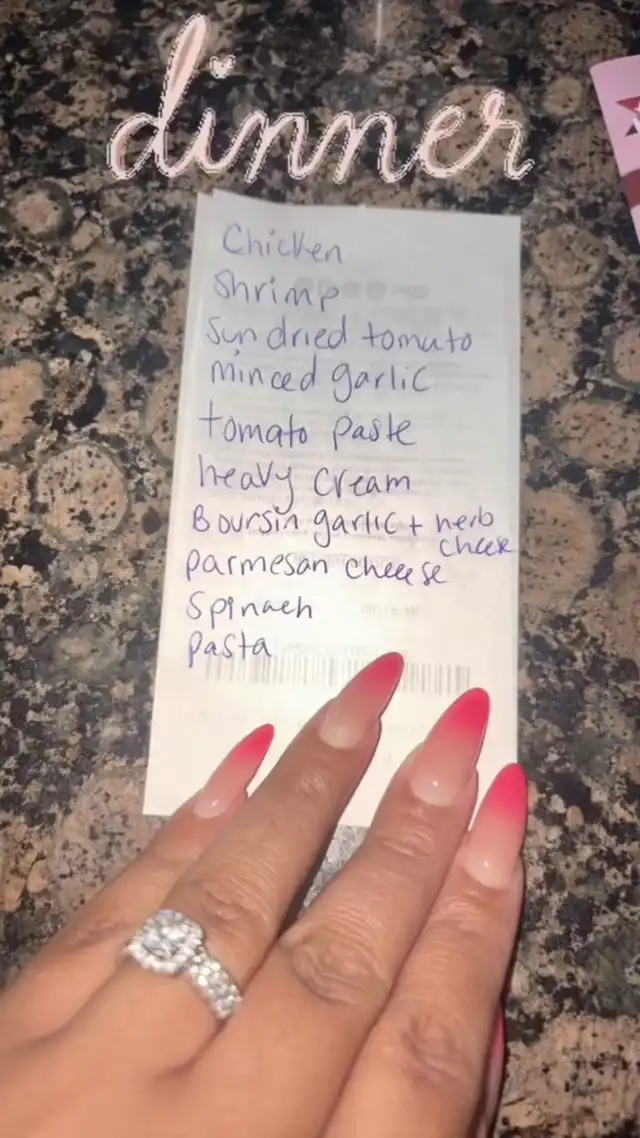 dinner
Chicken
shrimp
sun dried tomato
minced garlic
tomato paste
heavy cream
Boursin garlic + herb
cheese
parmesan cheese
spinach
pasta